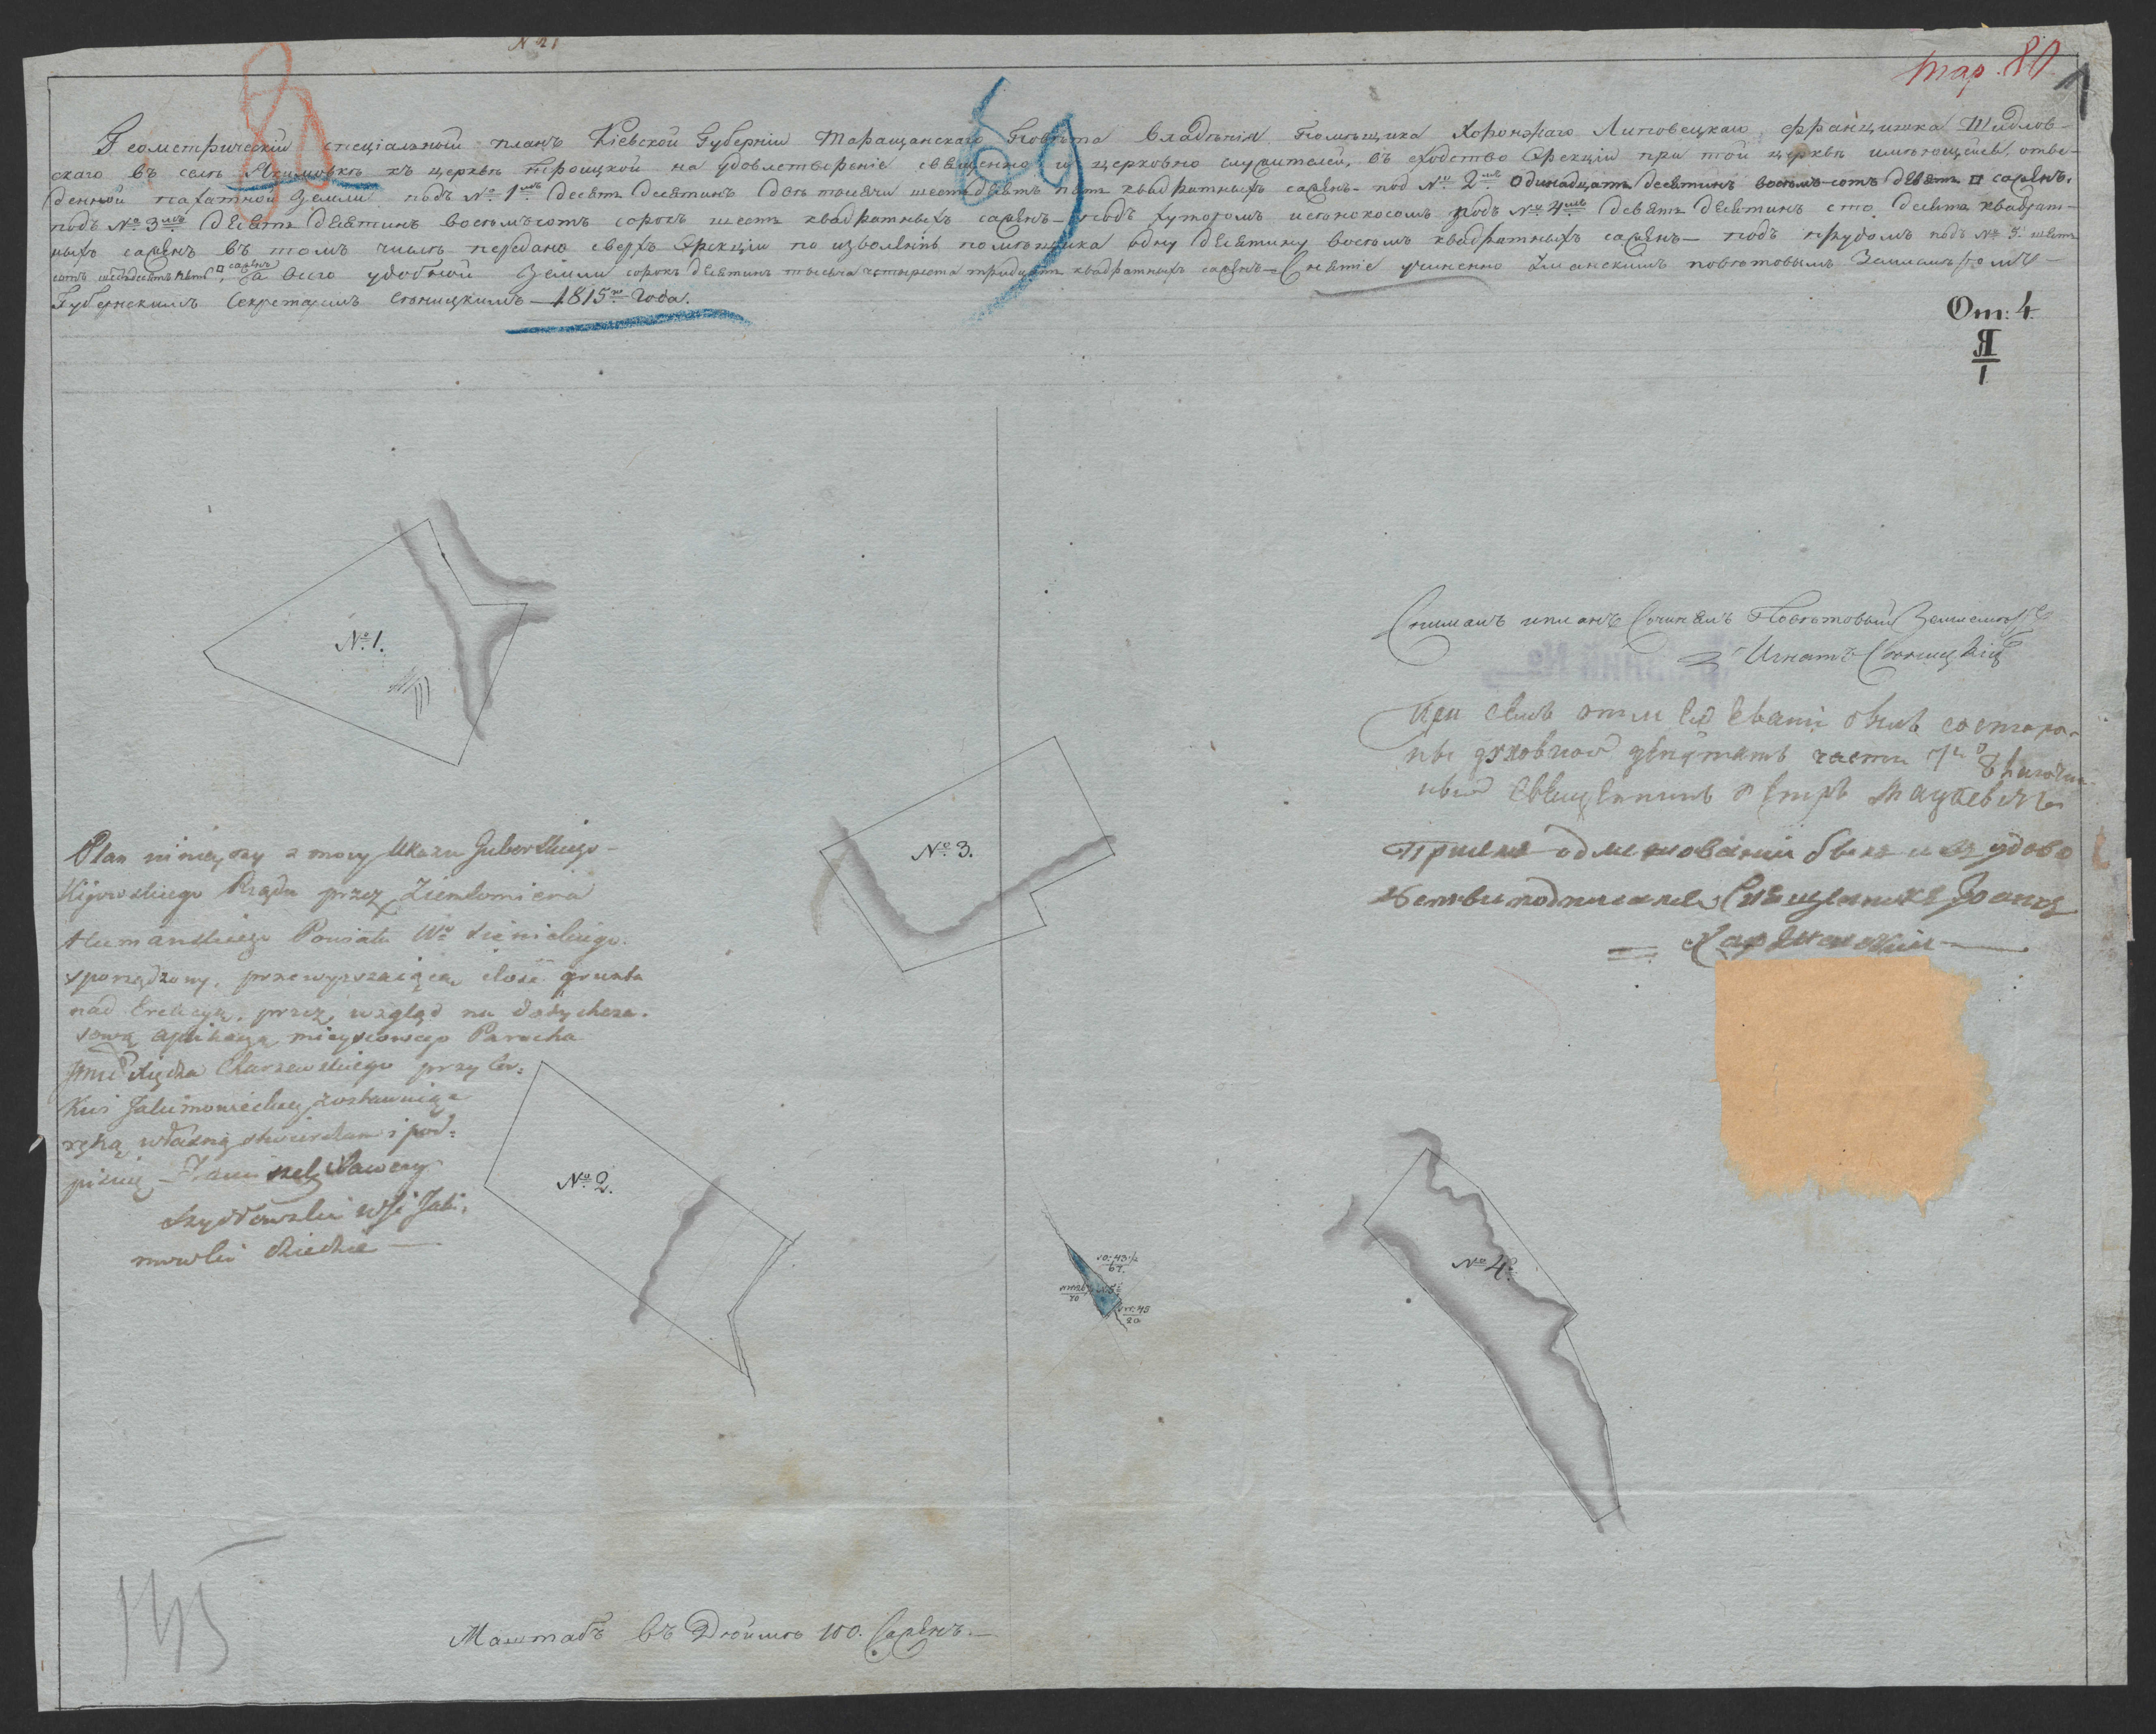 № 21
тар. 80
1
80
69
Геометрический специальный планъ Кіевской Губерніи Таращанскаго Повѣта владѣнія Помѣщика Хоронжаго Липовецкаго Францишка Шидлов-
скаго въ селѣ Якимовкѣ къ церквѣ Троицкой на удовлетвореніе священно и церковно служителей, въ сходство Эрекціи при той церквѣ имѣющейся, отве-
денной пахатной Земли подъ № 1мъ десять десятинъ двѣ тысячи шестьдесятъ пять квадратныхъ саженъ - под № 2мъ одинадцать десятинъ восемь сотъ девять □ саженъ.
подъ № 3мъ десять десятинъ восемьсотъ сорокъ шесть квадратныхъ саженъ - подъ хуторомъ исенокосомъ подъ № 4мъ девять десятинъ сто десять квадрат-
ныхъ саженъ въ томъ числѣ передано сверхъ Эрекціи по изволенію помѣщика одну десятину восемь квадратныхъ саженъ - подъ прудомъ подъ № 5. шесть
сотъ □ саженъ, а всего удобной Земли сорокъ десятинъ тысяча четыреста тридцать квадратныхъ саженъ - Снятіе учинено Уманскимъ повѣтовымъ Землемѣромъ
Губернскимъ Секретаремъ Сѣницкимъ - 1815го Года.
От: 4.
Я
1
№ 1.
Снималъ и планъ Сочинялъ Повѣтовый Землемѣръ
Игнатъ Сѣницкій
При семъ отмежеваніи былъ состоро-
ны духовной депутатъ части
священникъ Петръ
При сем одмежованіи былъ и въ удово
подписался Священникъ Іоаннъ
№ 3.
Plan ninieyszy z mocy Ukazu Guberskiego
Kijowskiego Rządu przez Ziemlomiera
Humanskiego Powiatu Wo Sienickiego
sporządzony, przewyzszaiącą ilość gruntu
nad Erekcyą, przez wzgląd na dotychcza-
sową aplikacyą mieyscowego Parocha
Xiędza Charzewskiego przy Cer-
kwi Jakimowieckiey zostawuiąc
ręką własną stwierdzam i pod-
pisuię - Franciszek Xawery
Szydłowski wsi Jaki-
mowki dziedzic
№ 2.
№ 4.
Маштабъ въ Дюймѣ 100. Саженъ.
145